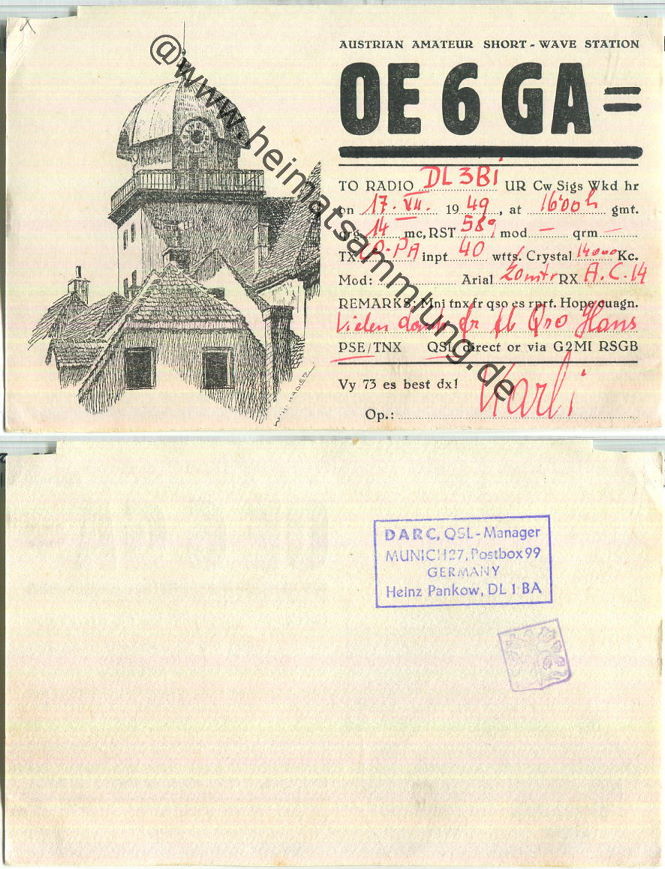 1
AUSTRIAN AMATEUR SHORT-WAVE STATION
OE 6 GA=
TO RADIO DL3Bi UR Cw Sigs Wkd hr
on 17. VII. 1949, at 16.00h gmt.
14 mc, RST 589 mod — qrm —
TX CO-PA inpt 40 wtts. Crystal 14000 Kc.
Mod: Arial 20mtr RX A.C.14
REMARKS: Mni tnx fr qso es rprt. Hope cuagn.
Vielen dank fr fb Qso Hans
PSE/TNX QSL direct or via G2MI RSGB
Vy 73 es best dx!
Op.: Karli
@www.heimatsammlung.de
DARC, QSL-Manager
MUNICH27, Postbox 99
GERMANY
Heinz Pankow, DL 1 BA